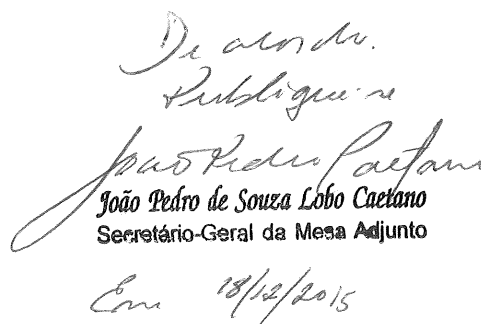 De acordo.
Publique-se
João Pedro Caetano
João Pedro de Souza Lobo Caetano
Secretário-Geral da Mesa Adjunto
Em 18/12/2015